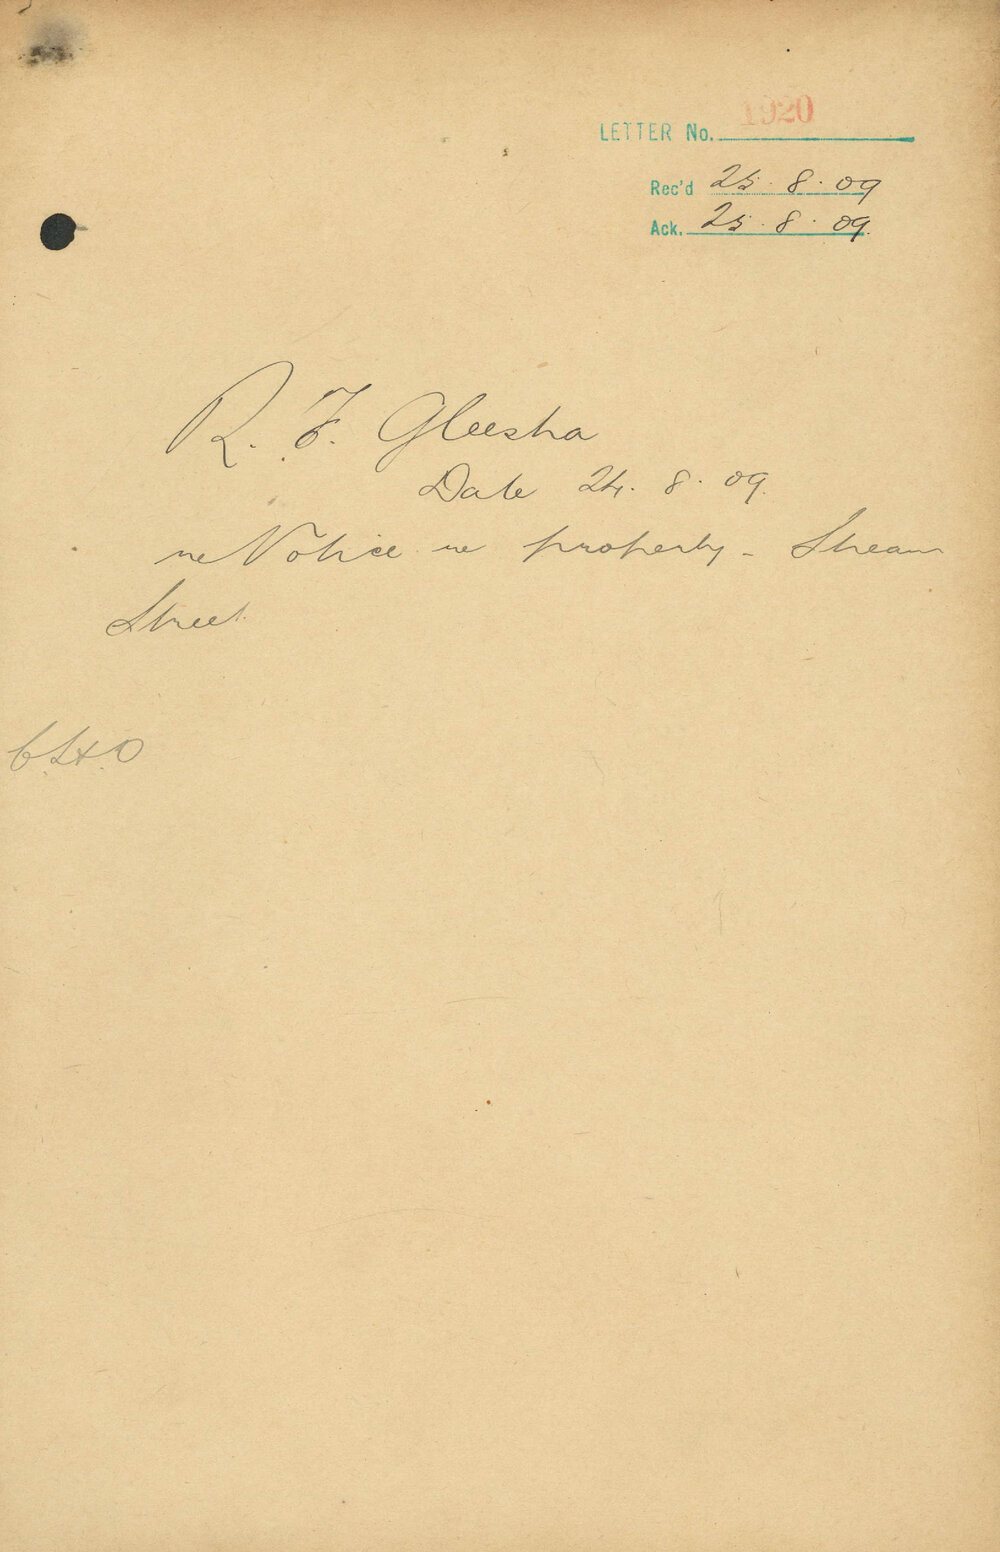 LETTER No. 1920
Rec'd 25. 8. 09
Ack. 25. 8. 09.
R. F. Gleesha
Date 24. 8. 09.
re Notice re property - Stream
Street
C.H.O